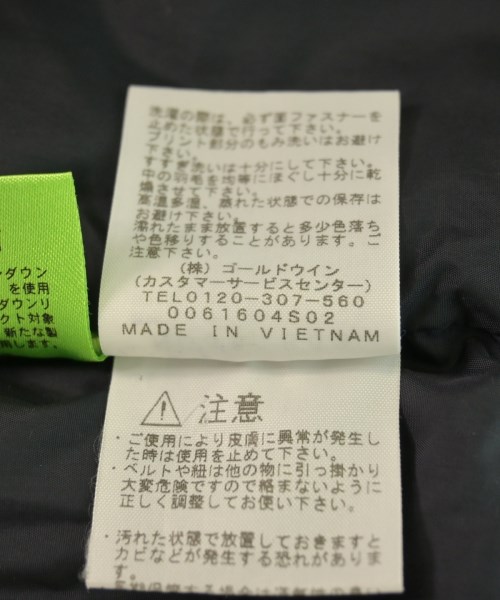 洗濯の際は、必ず面ファスナーを
止めた状態で行って下さい。
プリント部分のもみ洗いはお避け
下さい。
すすぎ洗いは十分にして下さい。
中の羽毛を均等にほぐし十分に乾
燥させて下さい。
高温多湿、蒸れた状態での保存は
お避け下さい。
濡れたまま放置すると多少色落ち
や色移りすることがあります。ご
注意下さい。
(株)ゴールドウイン
(カスタマーサービスセンター)
TEL0120-307-560
0061604S02
MADE IN VIETNAM
ダウン
を使用
ダウンリ
クト対象
新たな製
用します。
注意
・ご使用により皮膚に異常が発生し
た時は使用を止めて下さい。
・ベルトや紐は他の物に引っ掛かり
大変危険ですので絡まないように
正しく調整してお使い下さい。
・汚れた状態で放置しておきますと
カビなどが発生する恐れがありま
す。